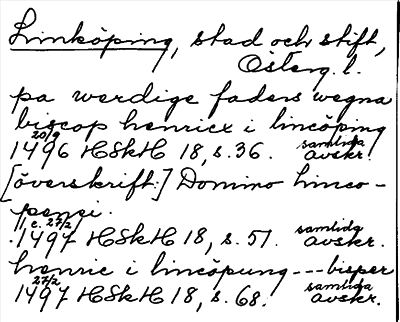 Linköping, stad och stift,
Österg. l.
pa werdige faders wegna
biscop henricx i lincöping
20/9
1496 HSkH 18, s. 36. samtida avskr.
[överskrift:] Domino linco-
pensi.
1 c. 27/2
.1497 HSkH 18, s. 51. samtida avskr.
henric i lincöpung --- bisper
27/2
1497 HSkH 18, s. 68. samtida avskr.